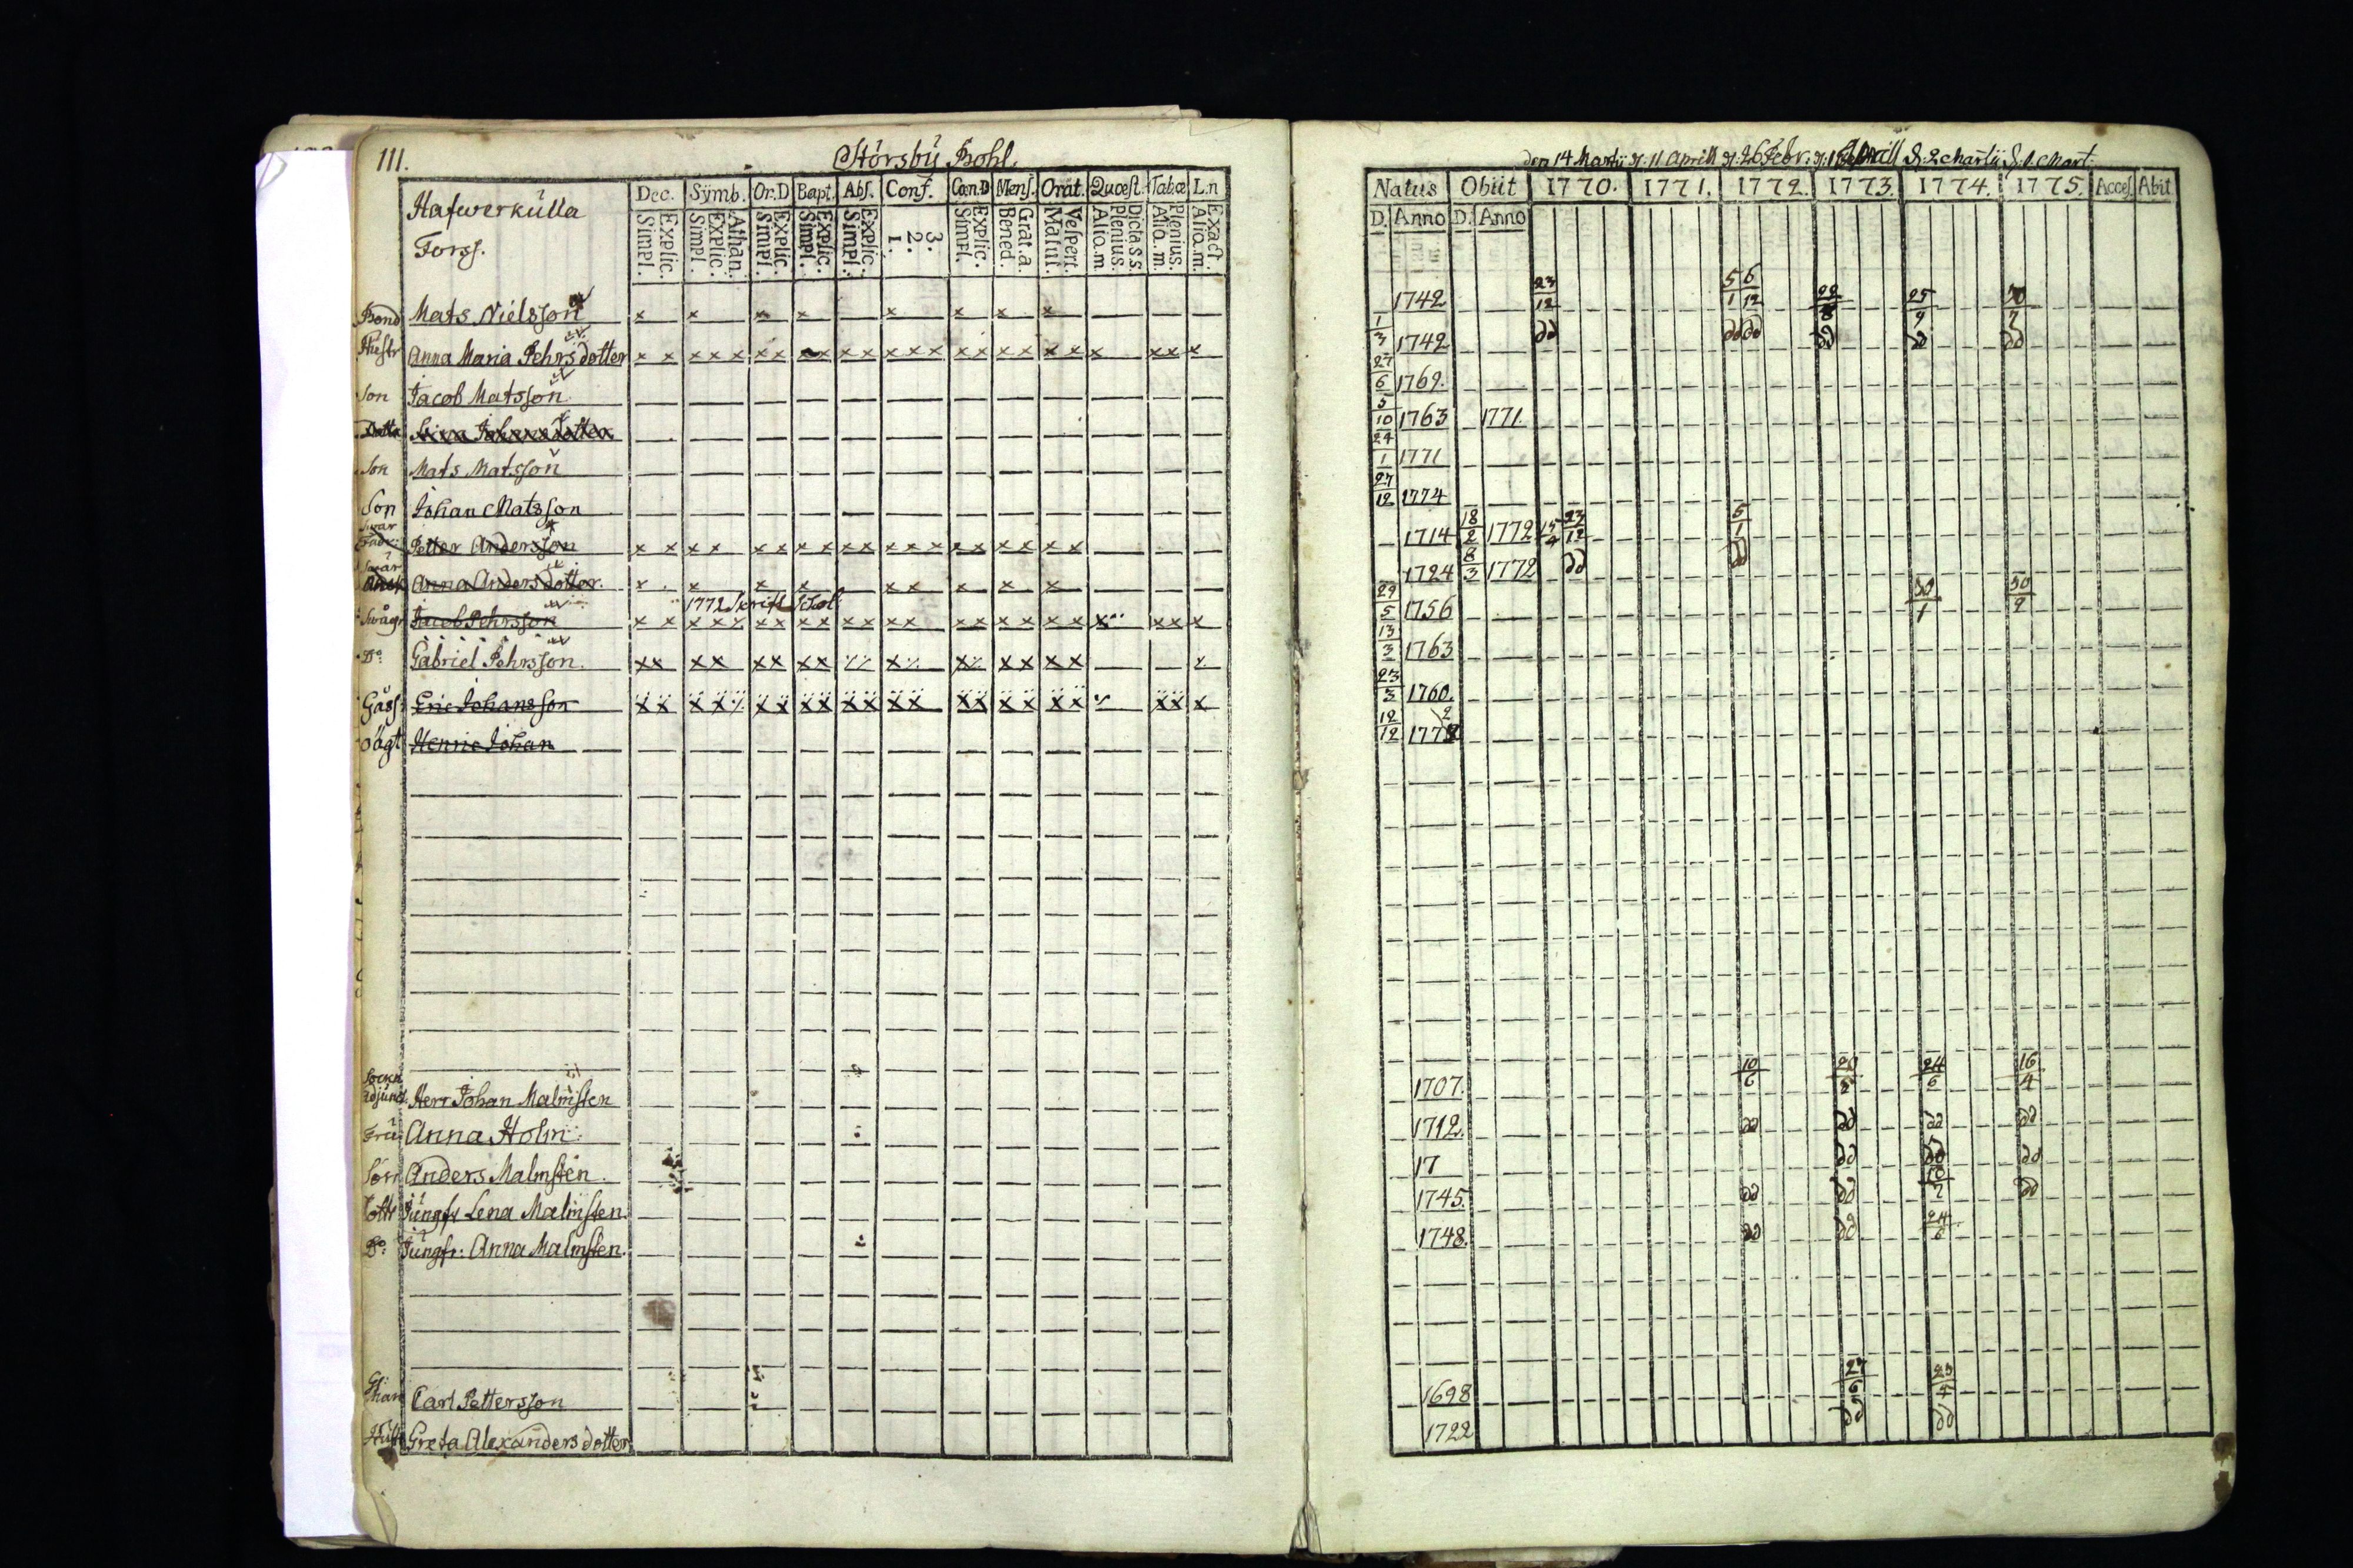 111. Störsby Bohl.
Hafwerkulla
Forss.
Dec. Symb. Or.D Bapt. Abs. Conf. Cœn.D Mens. Orat. Quœst. Tabœ L.n
Simpl. Explic. Simpl. Explic. Athan. Simpl. Explic. Simpl. Explic. Simpl. Explic. 1. 2. 3. Simpl. Explic. Bened. Grat.a. Matut. Vespert. Alio.m. Plenius. Dicta.s.s. Alio.m. Plenius. Alio.m. Exact.
Bond Mats Nielsson x x x x x x x x
Hustr Anna Maria Pehrsdotter x x x x x x x x x x x x x x x x x x x x x x x x x
Son Jacob Matsson
Son Mats Matsson
Son Johan Matsson
Swär
Petter Andersson x x x x x x x x x x x x x x x x x x x
Swär
Anna Andersdotter. x x x x x x x x x
1772 Skrift Schol
Swåg. Jacob Pehrsson x x x x x x x x x x x x x x x x x x x x x x x x
D:o Gabriel Pehrsson. x x x x x x x x x x x x x x x
Eric Johansson x x x x x x x x x x x x x x x x x x x x x x
Henric Johan
Sockn
adjunct. Herr Johan Malmsten
Fru Anna Holm
Son Anders Malmsten.
Jungfr Lena Malmsten
D:o Jungfr: Anna Malmsten.
Carl Pettersson
Greta Alexandersdotter
den 14 Martii 11 Aprill 26 Febr: 2 Martii 1. Mart:
Natus Obiit 1770. 1771. 1772. 1773. 1774. 1775. Acces. Abit
D. Anno D. Anno
1742 23/12 5/1 6/12 25/9
1/3 1742 dd dd dd dd dd dd
27/6 1769.
5/10 1763 1771.
24/1 1771
27/12 1774
1714 18/2 1772 15/4 23/12 5/1
1724 6/3 1772 dd dd
29/5 1756 30/1 30/2
13/3 1763
23/3 1760.
12/12 177 2
1707. 10/6 24/6 16/4
1712. dd dd dd dd
17 dd dd dd
1745. dd dd 10/7 dd
1748. dd dd 24/6
1698 27/6 23/4
1722 dd dd